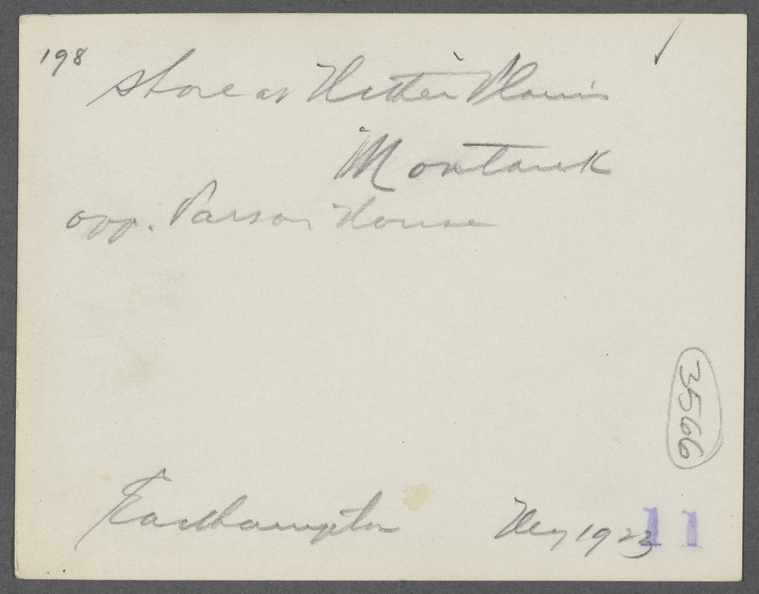 198
Store at Hither Plains
Montauk
opp. Parson House
3566
Easthampton 1923
11